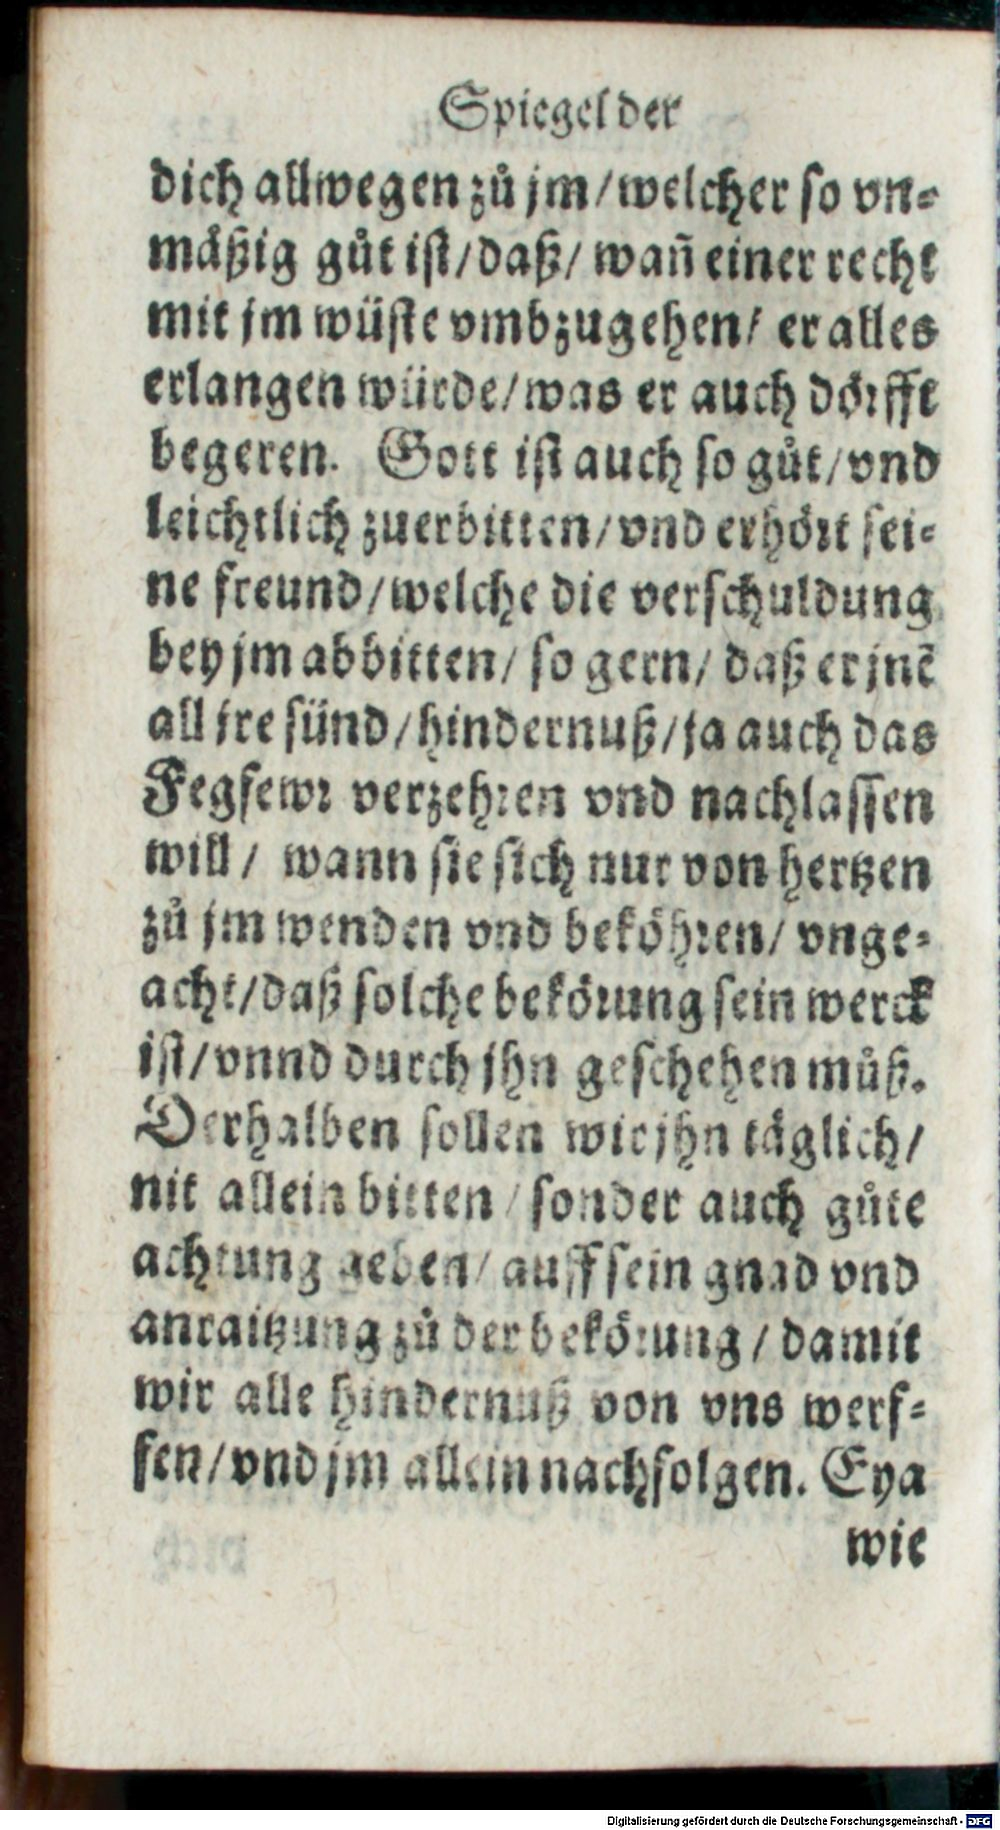 Spiegel der
dich allwegen zů jm/welcher so vn⸗
mäßig gůt ist/daß/ wañ einer recht
mit jm wüste vmbzugehen/ er alles
erlangen würde/was er auch dörfft
begeren. Gott ist auch so gůt/vnd
leichtlich zuerbitten/vnd erhört sei⸗
ne freund/welche die verschuldung
bey jm abbitten/ so gern/ daß er jnē
all jre sünd/hindernuß/ja auch das
Fegfewr verzehren vnd nachlassen
will/ wann sie sich nur von hertzen
zů jm wenden vnd beköhren/ vnge⸗
acht/daß solche bekörung sein werck
ist/vnnd durch jhn geschehen můß.
Derhalben sollen wir jhn täglich/
nit allein bitten/sonder auch gůte
achtung geben/ auff sein gnad vnd
anraitzung zů der bekörung/damit
wir alle hindernuß von vns werf⸗
fen/vnd jm allein nachfolgen. Eya
wie
Digitalisierung gefördert durch die Deutsche Forschungsgemeinschaft - DFG